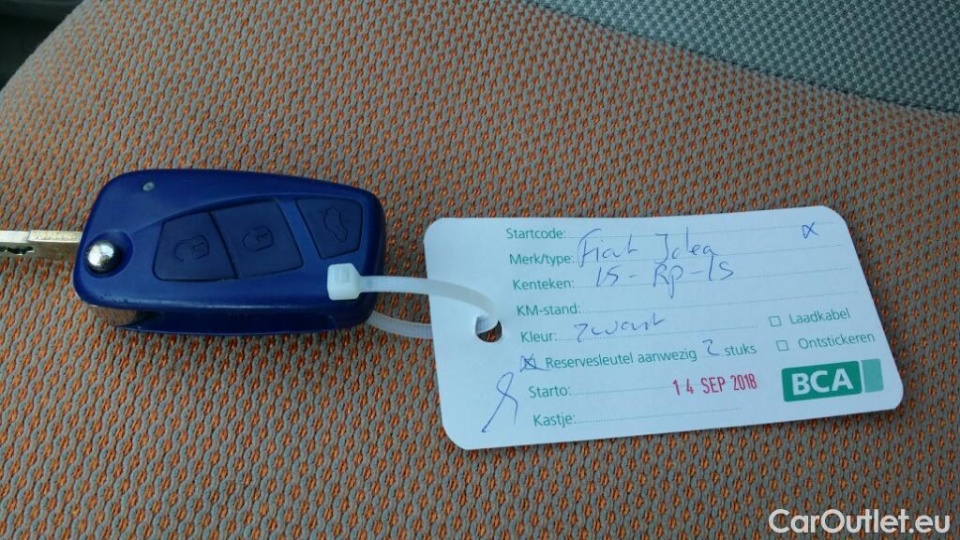 Startcode: x
Merk/type: Fiat Idea
Kenteken: 15-RP-15
KM-stand:
Kleur: zwart
Laadkabel
Reservesleutel aanwezig 2 stuks
Ontstickeren
Starto: 14 SEP 2018
BCA
Kastje:
CarOutlet.eu